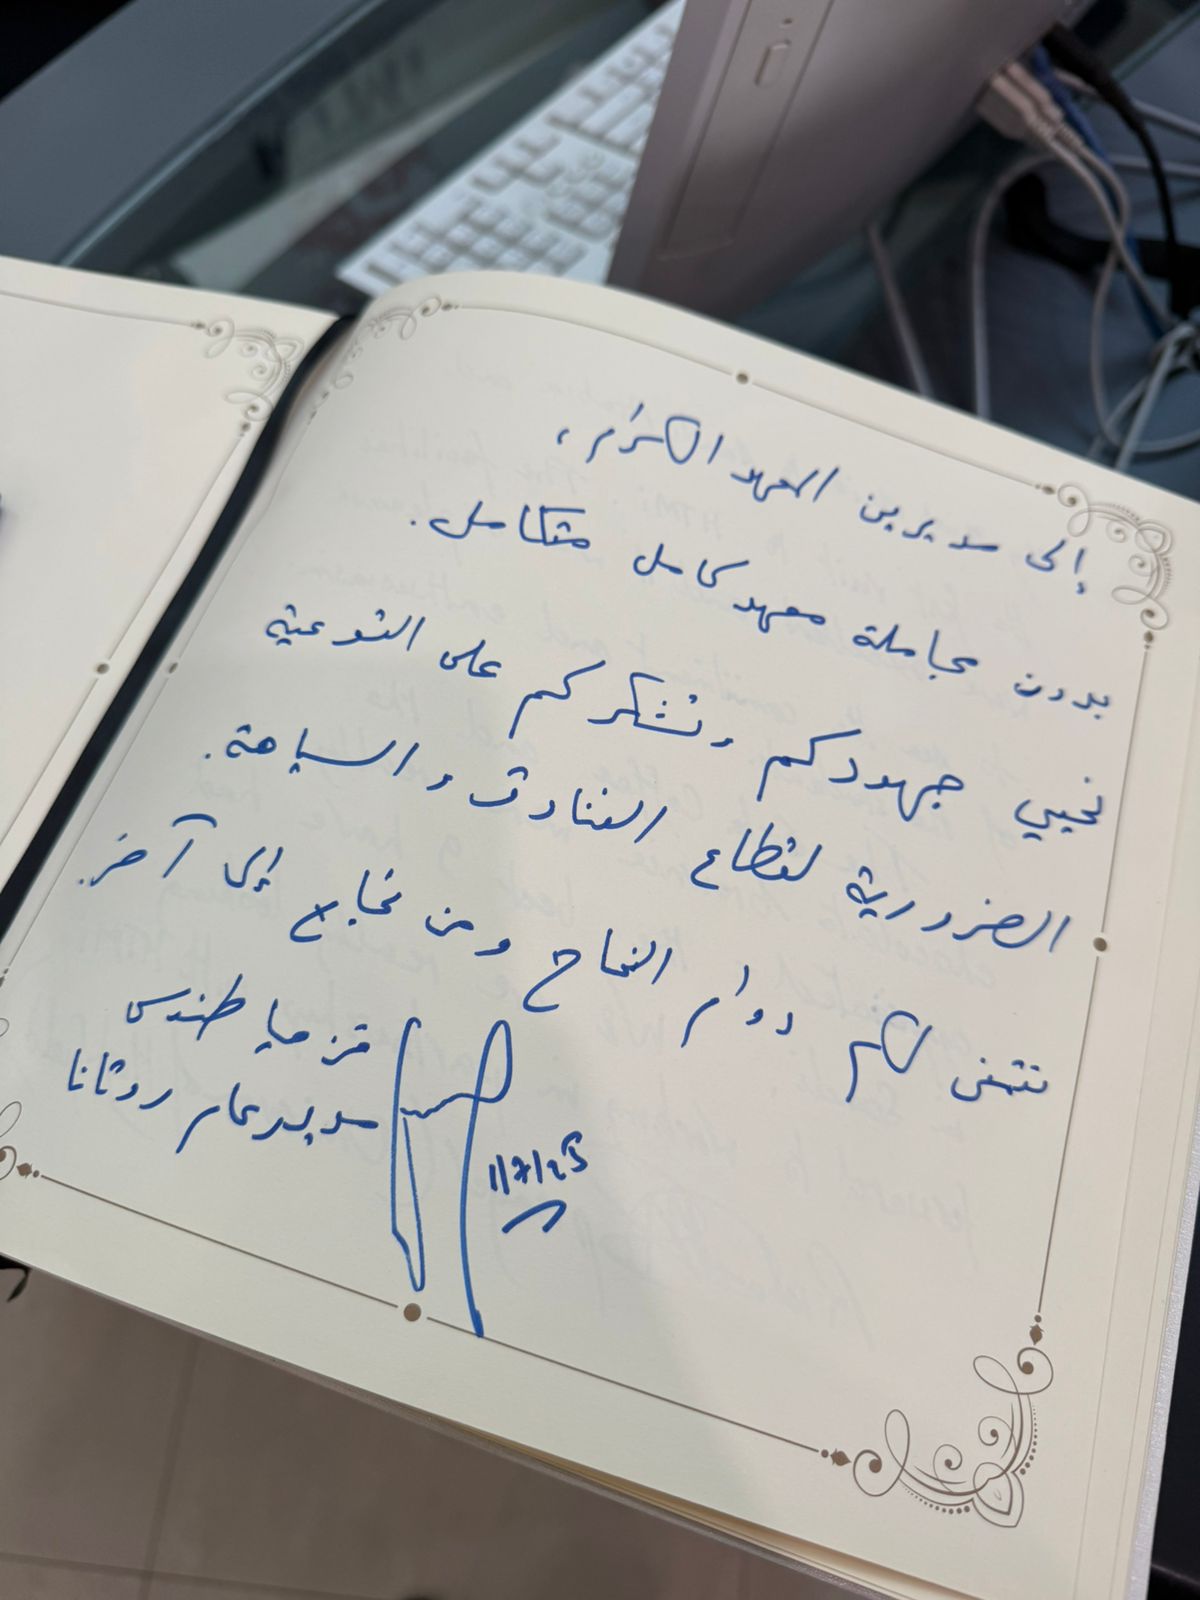 إلى مديرين المعهد الكرام،
بدون مجاملة معهد كامل متكامل.
نحيي جهودكم ونشكركم على التوعية
الضرورية لقطاع الفنادق والسياحة.
نتمنى لكم دوام النجاح ومن نجاح إلى آخر.
قزحيا طندس
مدير عام روتانا
1/7/25